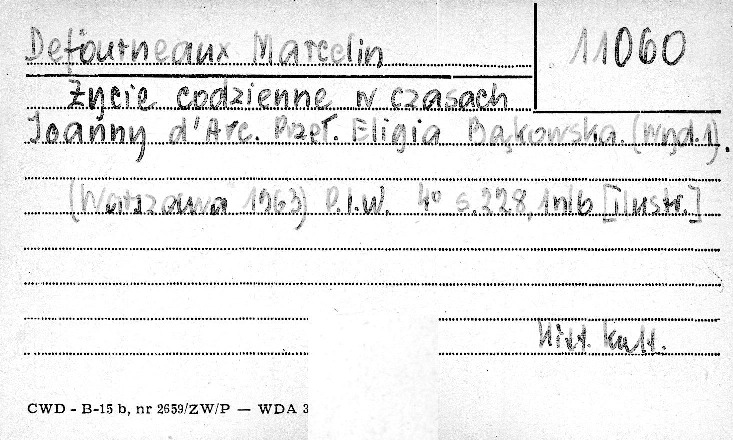 Defourneaux Marcelin
11060
Życie codzienne w czasach
Joanny d'Arc. Przeł. Eligia Bąkowska. (Wyd. 1).
(Warszawa 1963) P.I.W. 4° s. 228, 1 nlb [ilustr.]
Hist. kult.
CWD - B-15 b, nr 2659/ZW/P — WDA 3